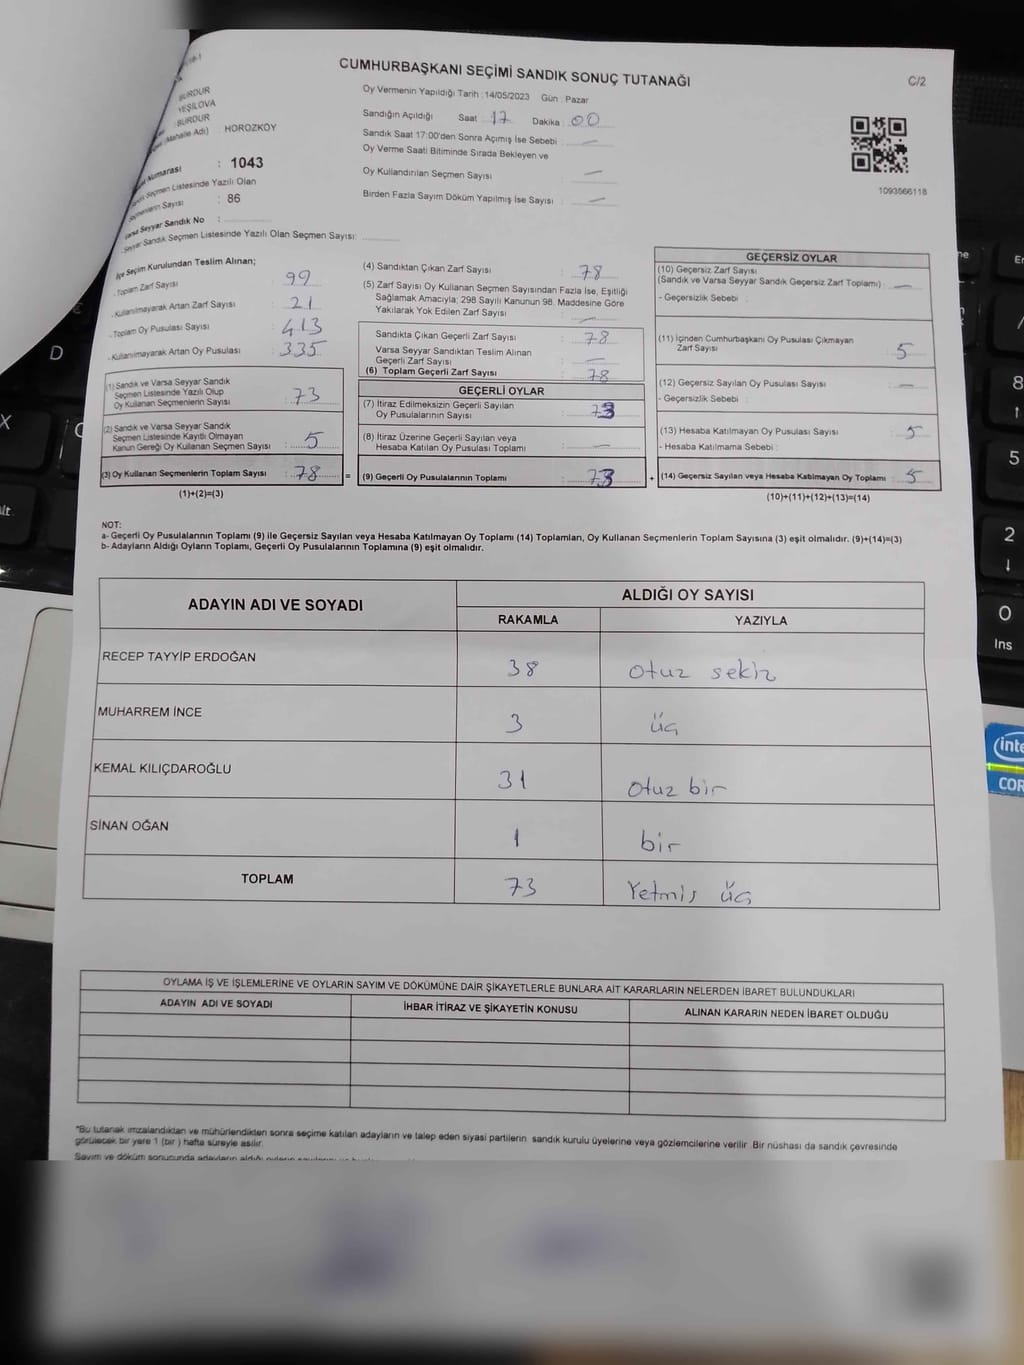 CUMHURBAŞKANI SEÇİMİ SANDIK SONUÇ TUTANAĞI
C/2
BURDUR
YEŞİLOVA
BURDUR
Mahalle Adı) HOROZKÖY
Numarası : 1043
Seçmen Listesinde Yazılı Olan
Seçmenlerin Sayısı : 86
Varsa Seyyar Sandık No :
Seyyar Sandık Seçmen Listesinde Yazılı Olan Seçmen Sayısı:
Oy Vermenin Yapıldığı Tarih : 14/05/2023 Gün : Pazar
Sandığın Açıldığı Saat 17 Dakika : 00
Sandık Saat 17:00'den Sonra Açımış İse Sebebi : —
Oy Verme Saati Bitiminde Sırada Bekleyen ve
Oy Kullandırılan Seçmen Sayısı : —
Birden Fazla Sayım Döküm Yapılmış İse Sayısı : —
1093566118
İlçe Seçim Kurulundan Teslim Alınan;
Toplam Zarf Sayısı : 99
Kullanılmayarak Artan Zarf Sayısı : 21
Toplam Oy Pusulası Sayısı : 413
Kullanılmayarak Artan Oy Pusulası : 335
(1) Sandık ve Varsa Seyyar Sandık
Seçmen Listesinde Yazılı Olup
Oy Kullanan Seçmenlerin Sayısı : 73
(2) Sandık ve Varsa Seyyar Sandık
Seçmen Listesinde Kayıtlı Olmayan
Kanun Gereği Oy Kullanan Seçmen Sayısı : 5
(3) Oy Kullanan Seçmenlerin Toplam Sayısı : 78 =
(1)+(2)=(3)
(4) Sandıktan Çıkan Zarf Sayısı : 78
(5) Zarf Sayısı Oy Kullanan Seçmen Sayısından Fazla İse, Eşitliği
Sağlamak Amacıyla; 298 Sayılı Kanunun 98. Maddesine Göre
Yakılarak Yok Edilen Zarf Sayısı : —
Sandıkta Çıkan Geçerli Zarf Sayısı : 78
Varsa Seyyar Sandıktan Teslim Alınan
Geçerli Zarf Sayısı : —
(6) Toplam Geçerli Zarf Sayısı : 78
GEÇERLİ OYLAR
(7) İtiraz Edilmeksizin Geçerli Sayılan
Oy Pusulalarının Sayısı : 73
(8) İtiraz Üzerine Geçerli Sayılan veya
Hesaba Katılan Oy Pusulası Toplamı : —
(9) Geçerli Oy Pusulalarının Toplamı : 73 +
GEÇERSİZ OYLAR
(10) Geçersiz Zarf Sayısı
(Sandık ve Varsa Seyyar Sandık Geçersiz Zarf Toplamı) : —
- Geçersizlik Sebebi :
(11) İçinden Cumhurbaşkanı Oy Pusulası Çıkmayan
Zarf Sayısı : 5
(12) Geçersiz Sayılan Oy Pusulası Sayısı : —
- Geçersizlik Sebebi :
(13) Hesaba Katılmayan Oy Pusulası Sayısı : 5
- Hesaba Katılmama Sebebi :
(14) Geçersiz Sayılan veya Hesaba Katılmayan Oy Toplamı : 5
(10)+(11)+(12)+(13)=(14)
NOT:
a- Geçerli Oy Pusulalarının Toplamı (9) ile Geçersiz Sayılan veya Hesaba Katılmayan Oy Toplamı (14) Toplamları, Oy Kullanan Seçmenlerin Toplam Sayısına (3) eşit olmalıdır. (9)+(14)=(3)
b- Adayların Aldığı Oyların Toplamı, Geçerli Oy Pusulalarının Toplamına (9) eşit olmalıdır.
ADAYIN ADI VE SOYADI ALDIĞI OY SAYISI
RAKAMLA YAZIYLA
RECEP TAYYİP ERDOĞAN 38 otuz sekiz
MUHARREM İNCE 3 üç
KEMAL KILIÇDAROĞLU 31 otuz bir
SİNAN OĞAN 1 bir
TOPLAM 73 Yetmiş üç
OYLAMA İŞ VE İŞLEMLERİNE VE OYLARIN SAYIM VE DÖKÜMÜNE DAİR ŞİKAYETLERLE BUNLARA AİT KARARLARIN NELERDEN İBARET BULUNDUKLARI
ADAYIN ADI VE SOYADI İHBAR İTİRAZ VE ŞİKAYETİN KONUSU ALINAN KARARIN NEDEN İBARET OLDUĞU
*Bu tutanak imzalandıktan ve mühürlendikten sonra seçime katılan adayların ve talep eden siyasi partilerin sandık kurulu üyelerine veya gözlemcilerine verilir. Bir nüshası da sandık çevresinde
görülecek bir yere 1 (bir) hafta süreyle asılır.
Sayım ve döküm sonucunda adayların aldığı oyların
D
X
8
5
2
0
Ins